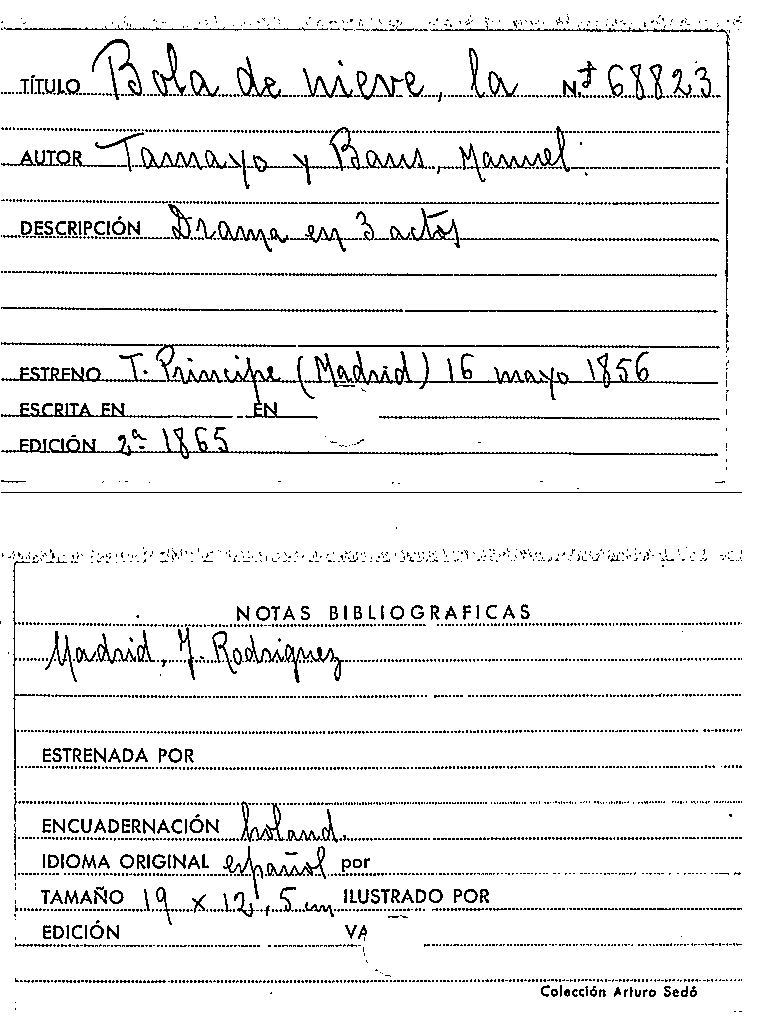 TÍTULO Bola de nieve, la N.º 68823
AUTOR Tamayo y Baus, Manuel.
DESCRIPCIÓN Drama en 3 actos
ESTRENO T. Principe (Madrid) 16 mayo 1856
ESCRITA EN EN
EDICIÓN 2ª 1865
NOTAS BIBLIOGRAFICAS
Madrid, J. Rodriguez
ESTRENADA POR
ENCUADERNACIÓN holand.
IDIOMA ORIGINAL español por
TAMAÑO 19 x 12,5 cm ILUSTRADO POR
EDICIÓN VA
Colección Arturo Sedó